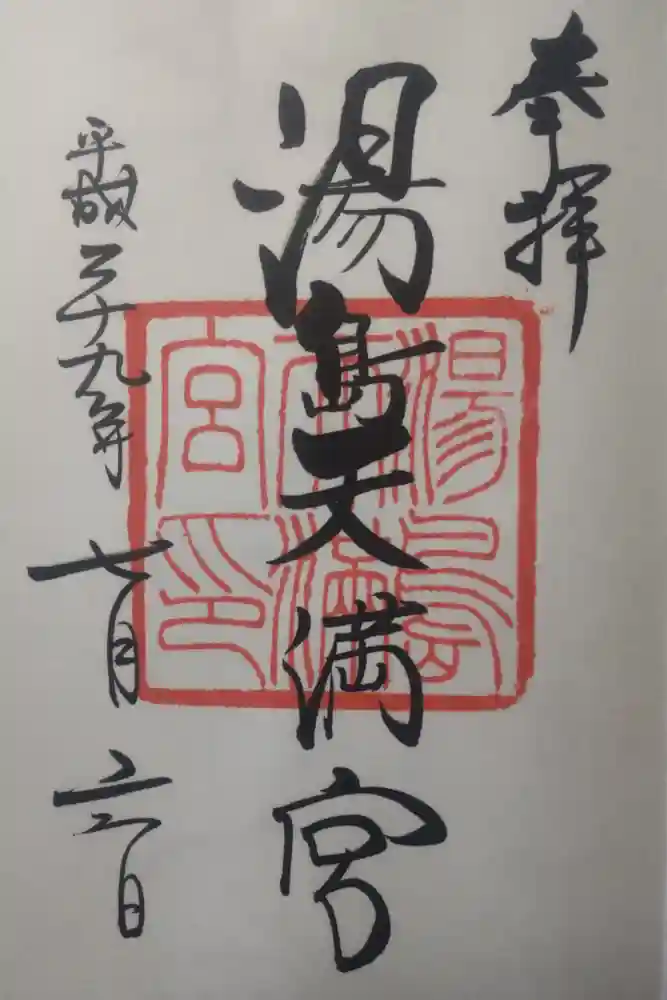 奉拝
湯島天満宮
平成二十九年七月 日
湯島
天満
宮印